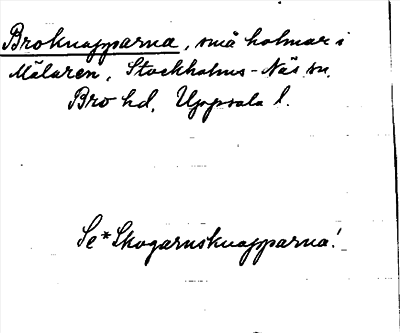 Broknapparna, små holmar i
Mälaren, Stockholms-Näs sn,
Bro hd, Uppsala l.
Se *Skogarnsknapparna!